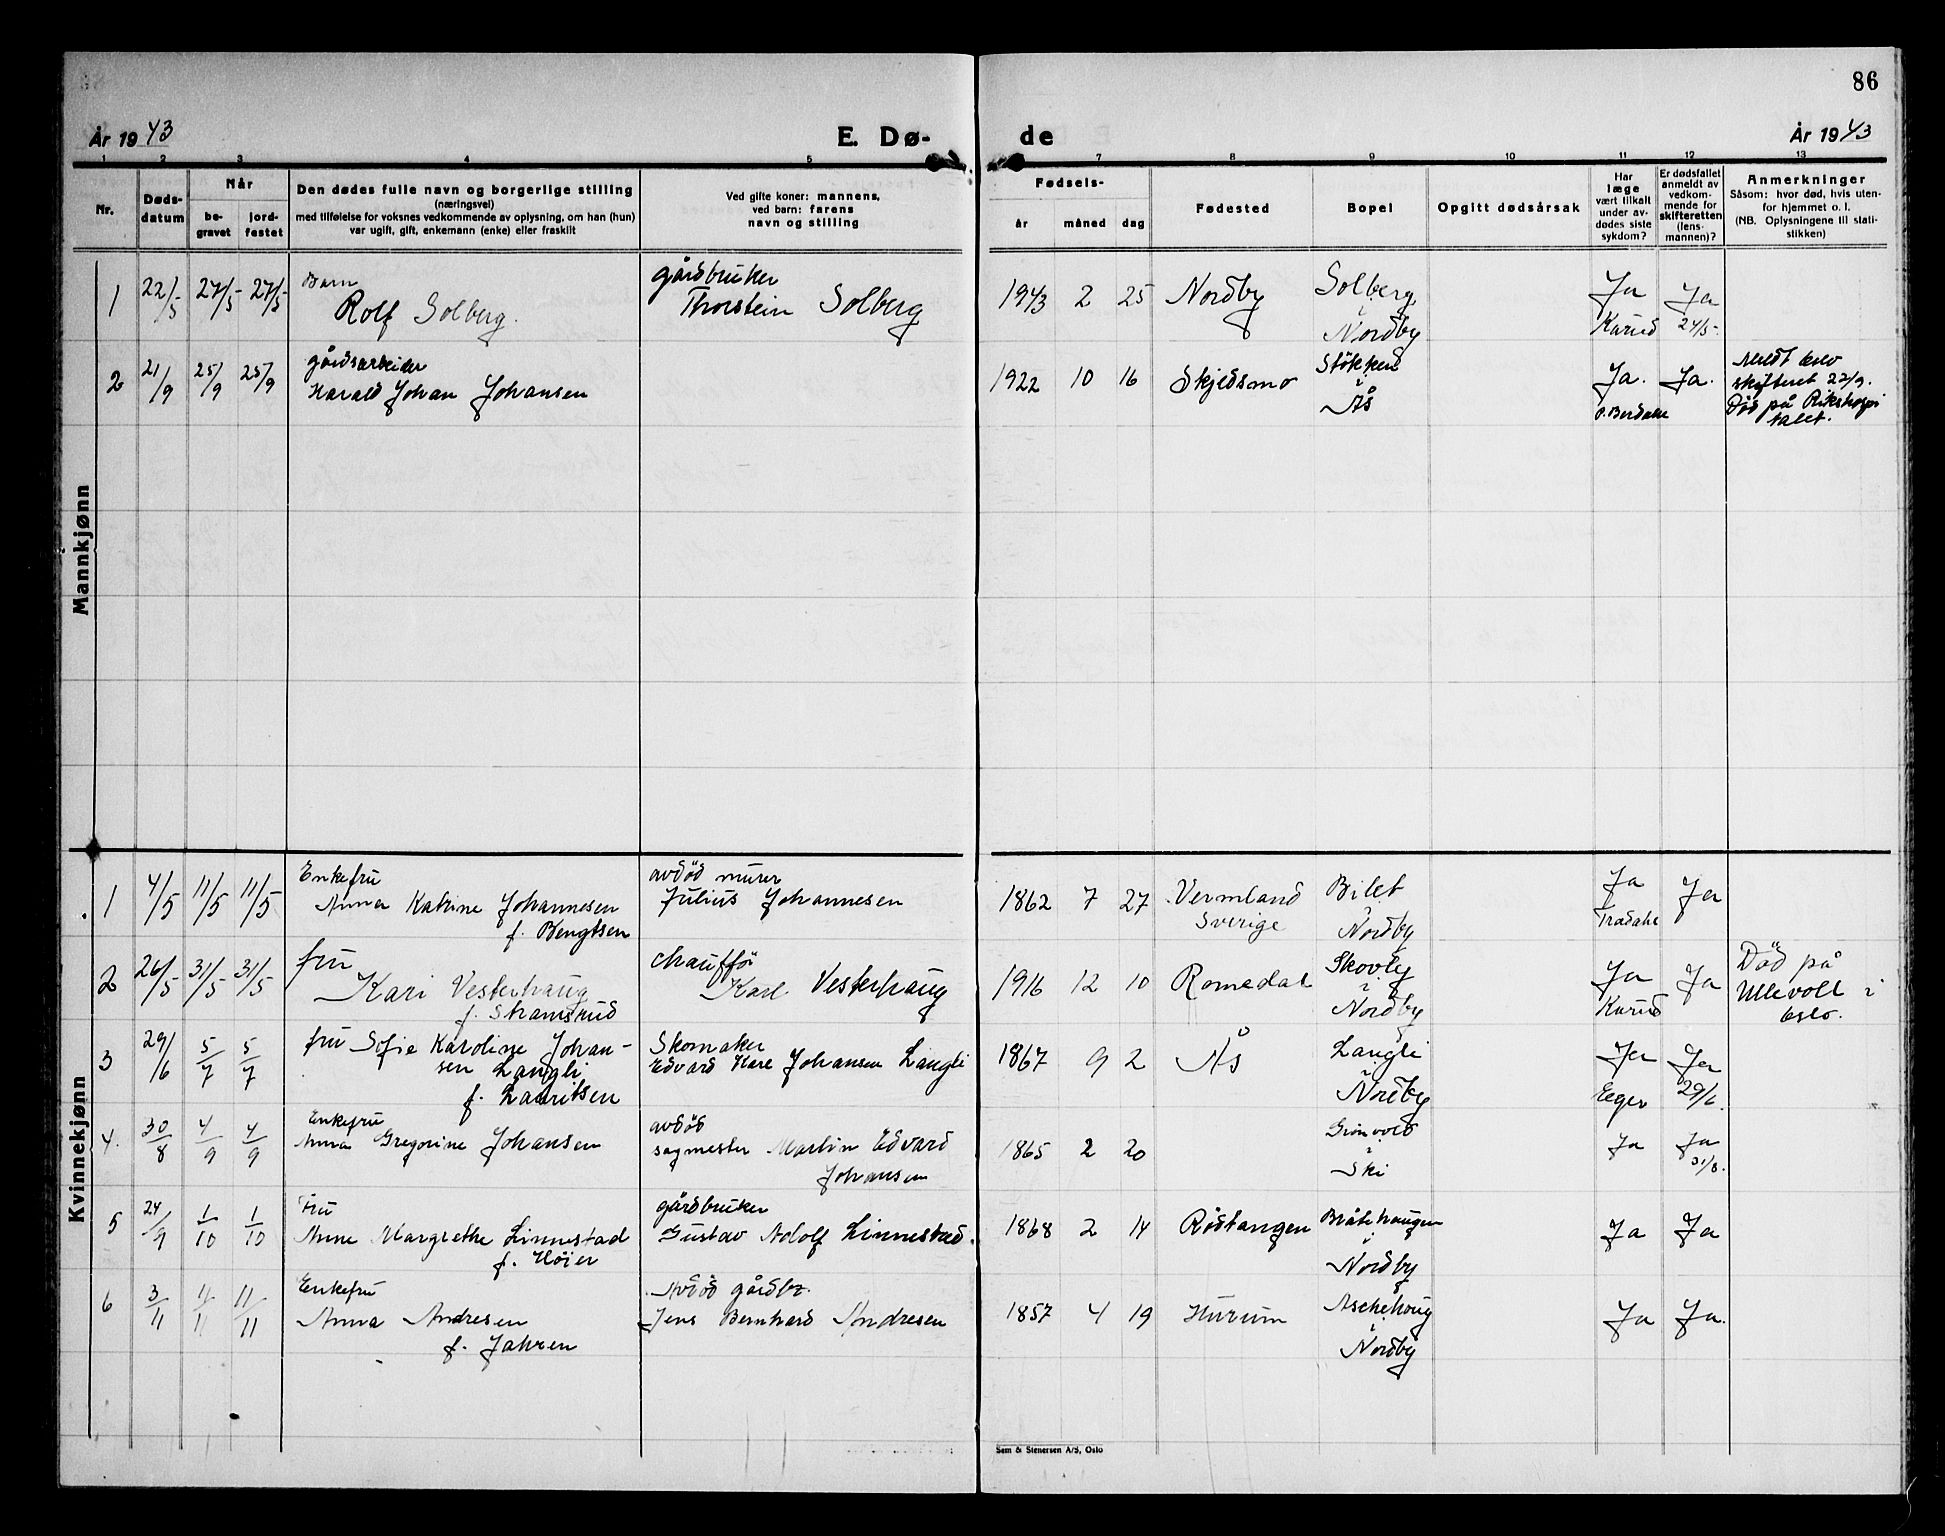 86
År 1943
E. Dø-
de
År 1943
1 2 3 4 5 7 8 9 10 11 12 13
Nr.
Døds-
datum
Når
be-
gravet
jord-
festet
Den dødes fulle navn og borgerlige stilling
(næringsvei)
med tilføielse for voksnes vedkommende av oplysning, om han (hun)
var ugift, gift, enkemann (enke) eller fraskilt
Ved gifte koner: mannens,
ved barn: farens
navn og stilling
Fødsels-
år måned dag
Fødested
Bopel
Opgitt dødsårsak
Har
læge
vært tilkalt
under av-
dødes siste
sykdom?
Er dødsfallet
anmeldt av
vedkom-
mende for
skifteretten
(lens-
mannen)?
Anmerkninger
Såsom: hvor død, hvis uten-
for hjemmet o. l.
(NB. Oplysningene til stati-
stikken)
Mannkjønn
1 22/5 27/5 27/5
Barn
Rolf Solberg.
gårdbruker
Thorstein Solberg
1943 2 25 Nordby
Solberg
i
Nordby
Ja
Karud
Ja
24/5-
2 21/9 25/9 25/9
gårdsarbeider
Harald Johan Johansen
1922 10 16 Skjedsmo
Stökken
i
Ås
Ja.
Ja.
Meldt Oslo
skifteret 22/9.
Död på Rikshospi
talet.
Kvinnekjønn
1 4/5 11/5 11/5
Enkefru
Anna Katrine Johannesen
f. Bengtsen
avdød murer
Julius Johannesen
1862 7 27
Vermland
Sverige
Bilet
i
Nordby
Ja
Tradahl
Ja
2 26/5 31/5 31/5
fru
Kari Vesterhaug
f. Stramsrud
chauffør
Karl Vesterhaug
1916 12 10 Romedal
Skovly
i
Nordby
Ja
Karud
Ja
Död på
Ullevoll i
Oslo.
3 29/6 5/7 5/7
fru Sofie Karoline Johan-
sen Langli
f. Lauritsen
Skomaker
Edvard Karl Johansen Langli
1867 9 2 Ås
Langli
i
Nordby
Ja
Eger
Ja
29/6.
4. 30/8 4/9 4/9
Enkefru
Anna Gregorine Johansen
avdöd
sagmester Martin Edvard
Johansen
1865 2 20
Grönvold
i
Ski
Ja
Ja
31/8.
5 24/9 1/10 1/10
Fru
Anne Margrethe Linnestad
f. Höier
gårdbruker
Gustav Adolf Linnestad.
1868 2 14 Rödtangen
Bråtehaugen
i
Nordby
Ja Ja
6 3/11 11/11 11/11
Enkefru
Anna Andresen
f. Jahren
Avdöd gårdbr.
Jens Bernhard Andresen
1857 4 19 Hurum
Aschehoug
i
Nordby
Ja Ja.
Sem & Stenersen A/S, Oslo